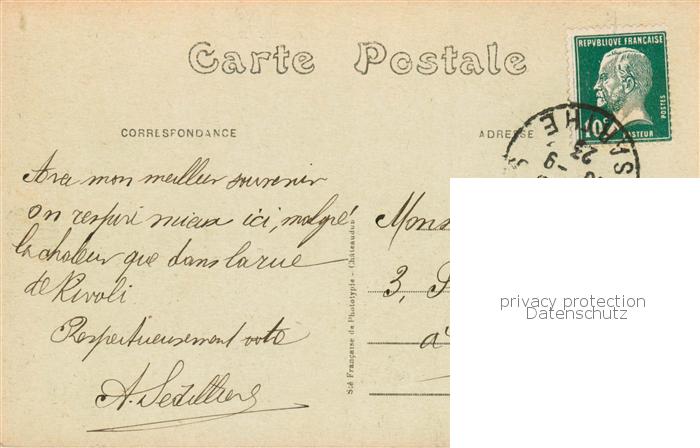 Carte Postale
REPVBLIQUE FRANÇAISE
POSTES
10c
PASTEUR
CORRESPONDANCE
ADRESSE
SARTHE
23
-9
Avec mon meilleur souvenir
on respire mieux ici, malgré
la chaleur que dans la rue
de Rivoli
Respectueusement votre
A.
Sté Française de Phototypie - Châteaudun
3,
à
privacy protection
Datenschutz